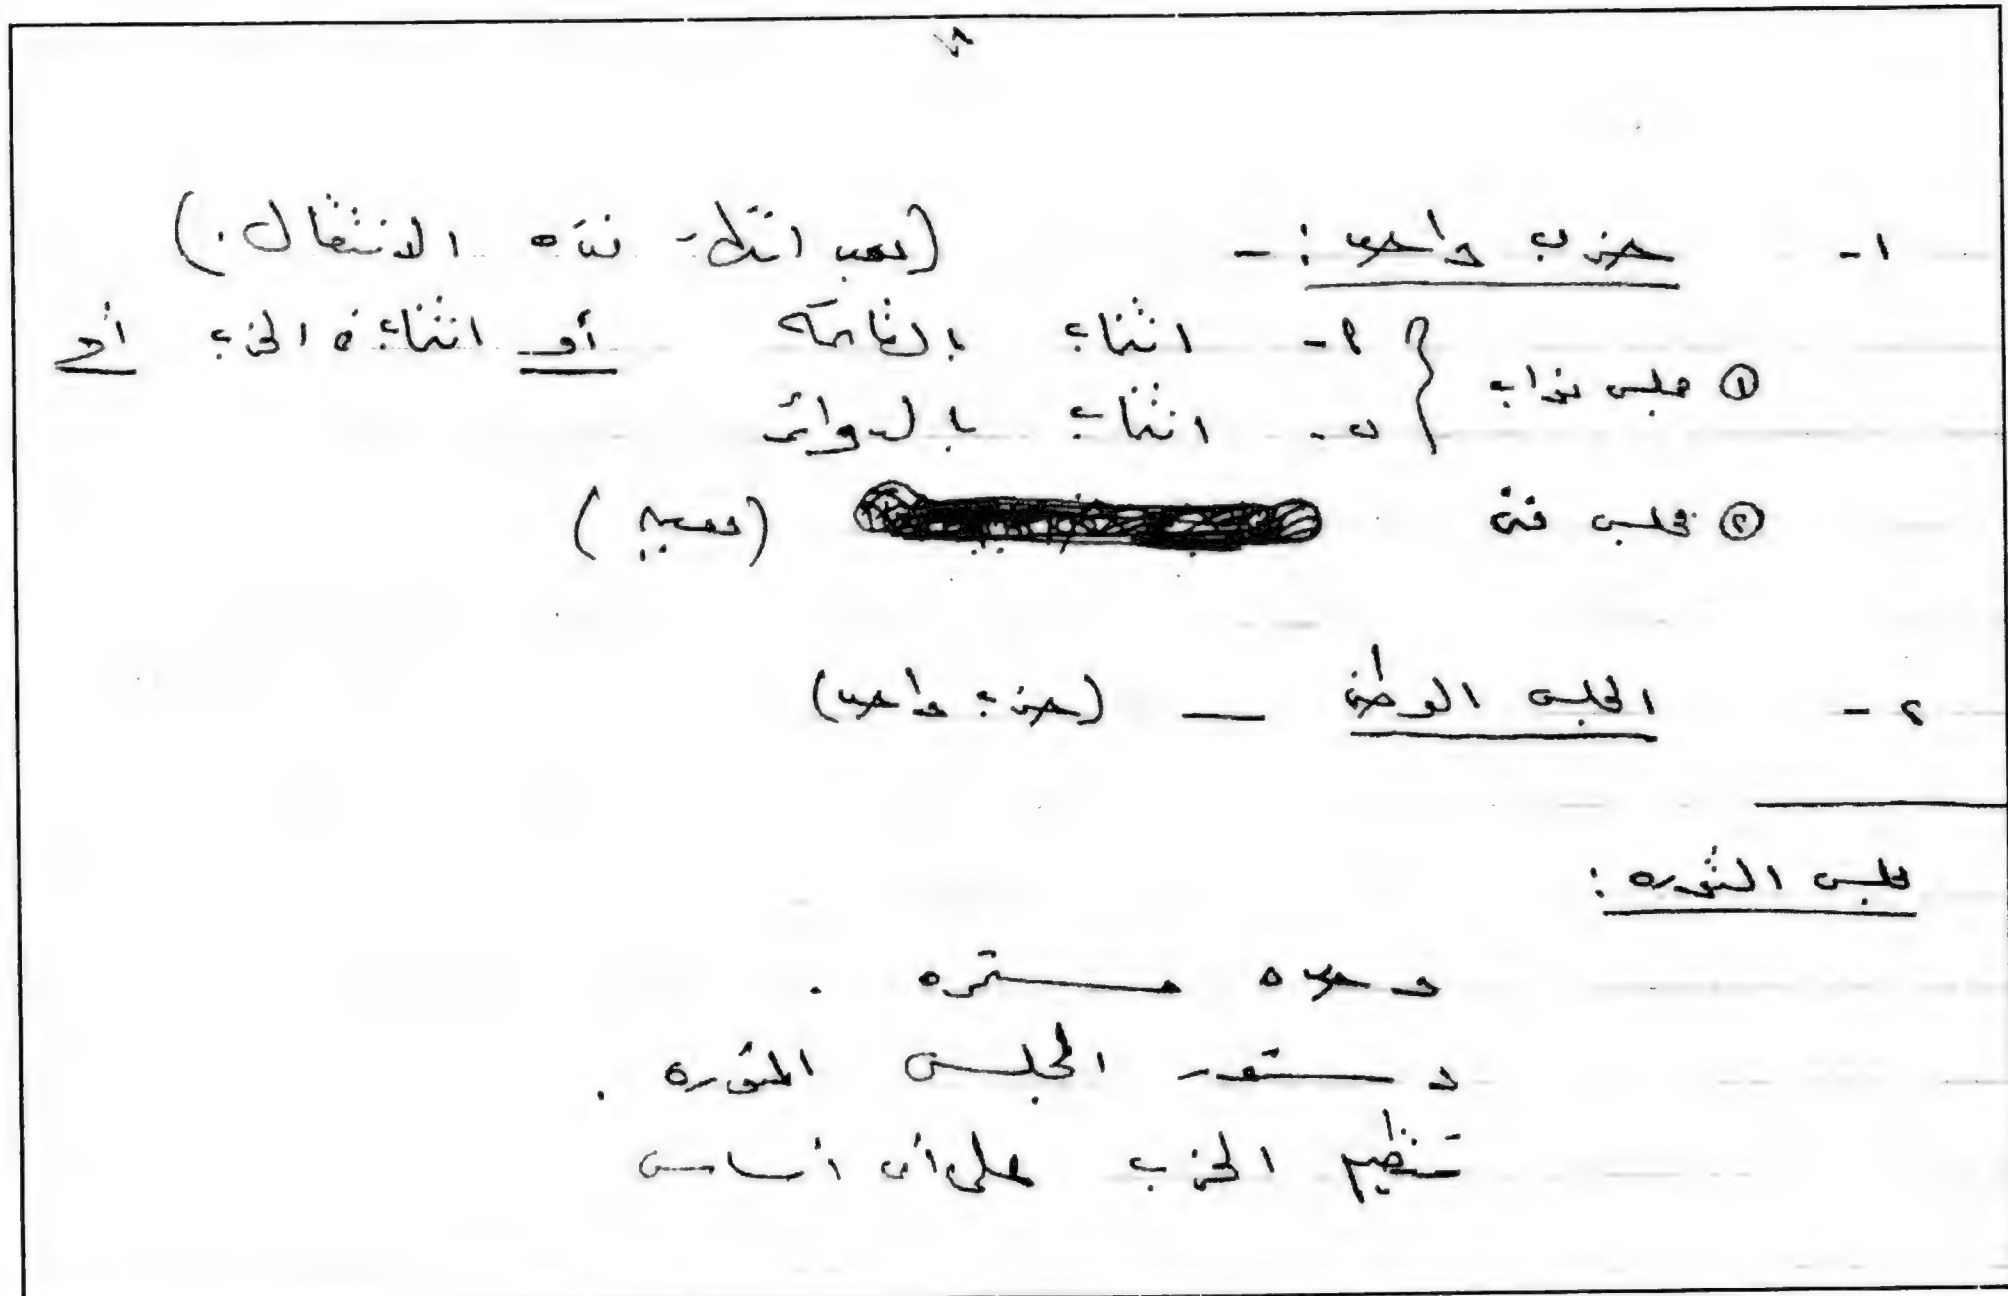 ١- حزب واحد :- (بعد انتهاء فترة الانتقال.)
① مجلس نواب { أ- انتخاب بالقائمة أو انتخاب فى الحزب أو
ب- انتخاب بالدوائر
② مجلس فنى (تعيين)
٢- المجلس الوطنى — (حزب واحد)
مجلس الثوره :
وحده مستمره .
دستور المجلس الثوره .
تنظيم الحزب على أى أساس